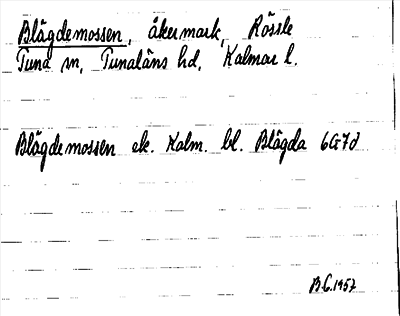 Blågdemossen, åkermark, Rössle
Tuna sn, Tunaläns hd, Kalmar l.
Blågdemossen ek. Kalm. bl. Blågda 6G7d
B.C. 1957